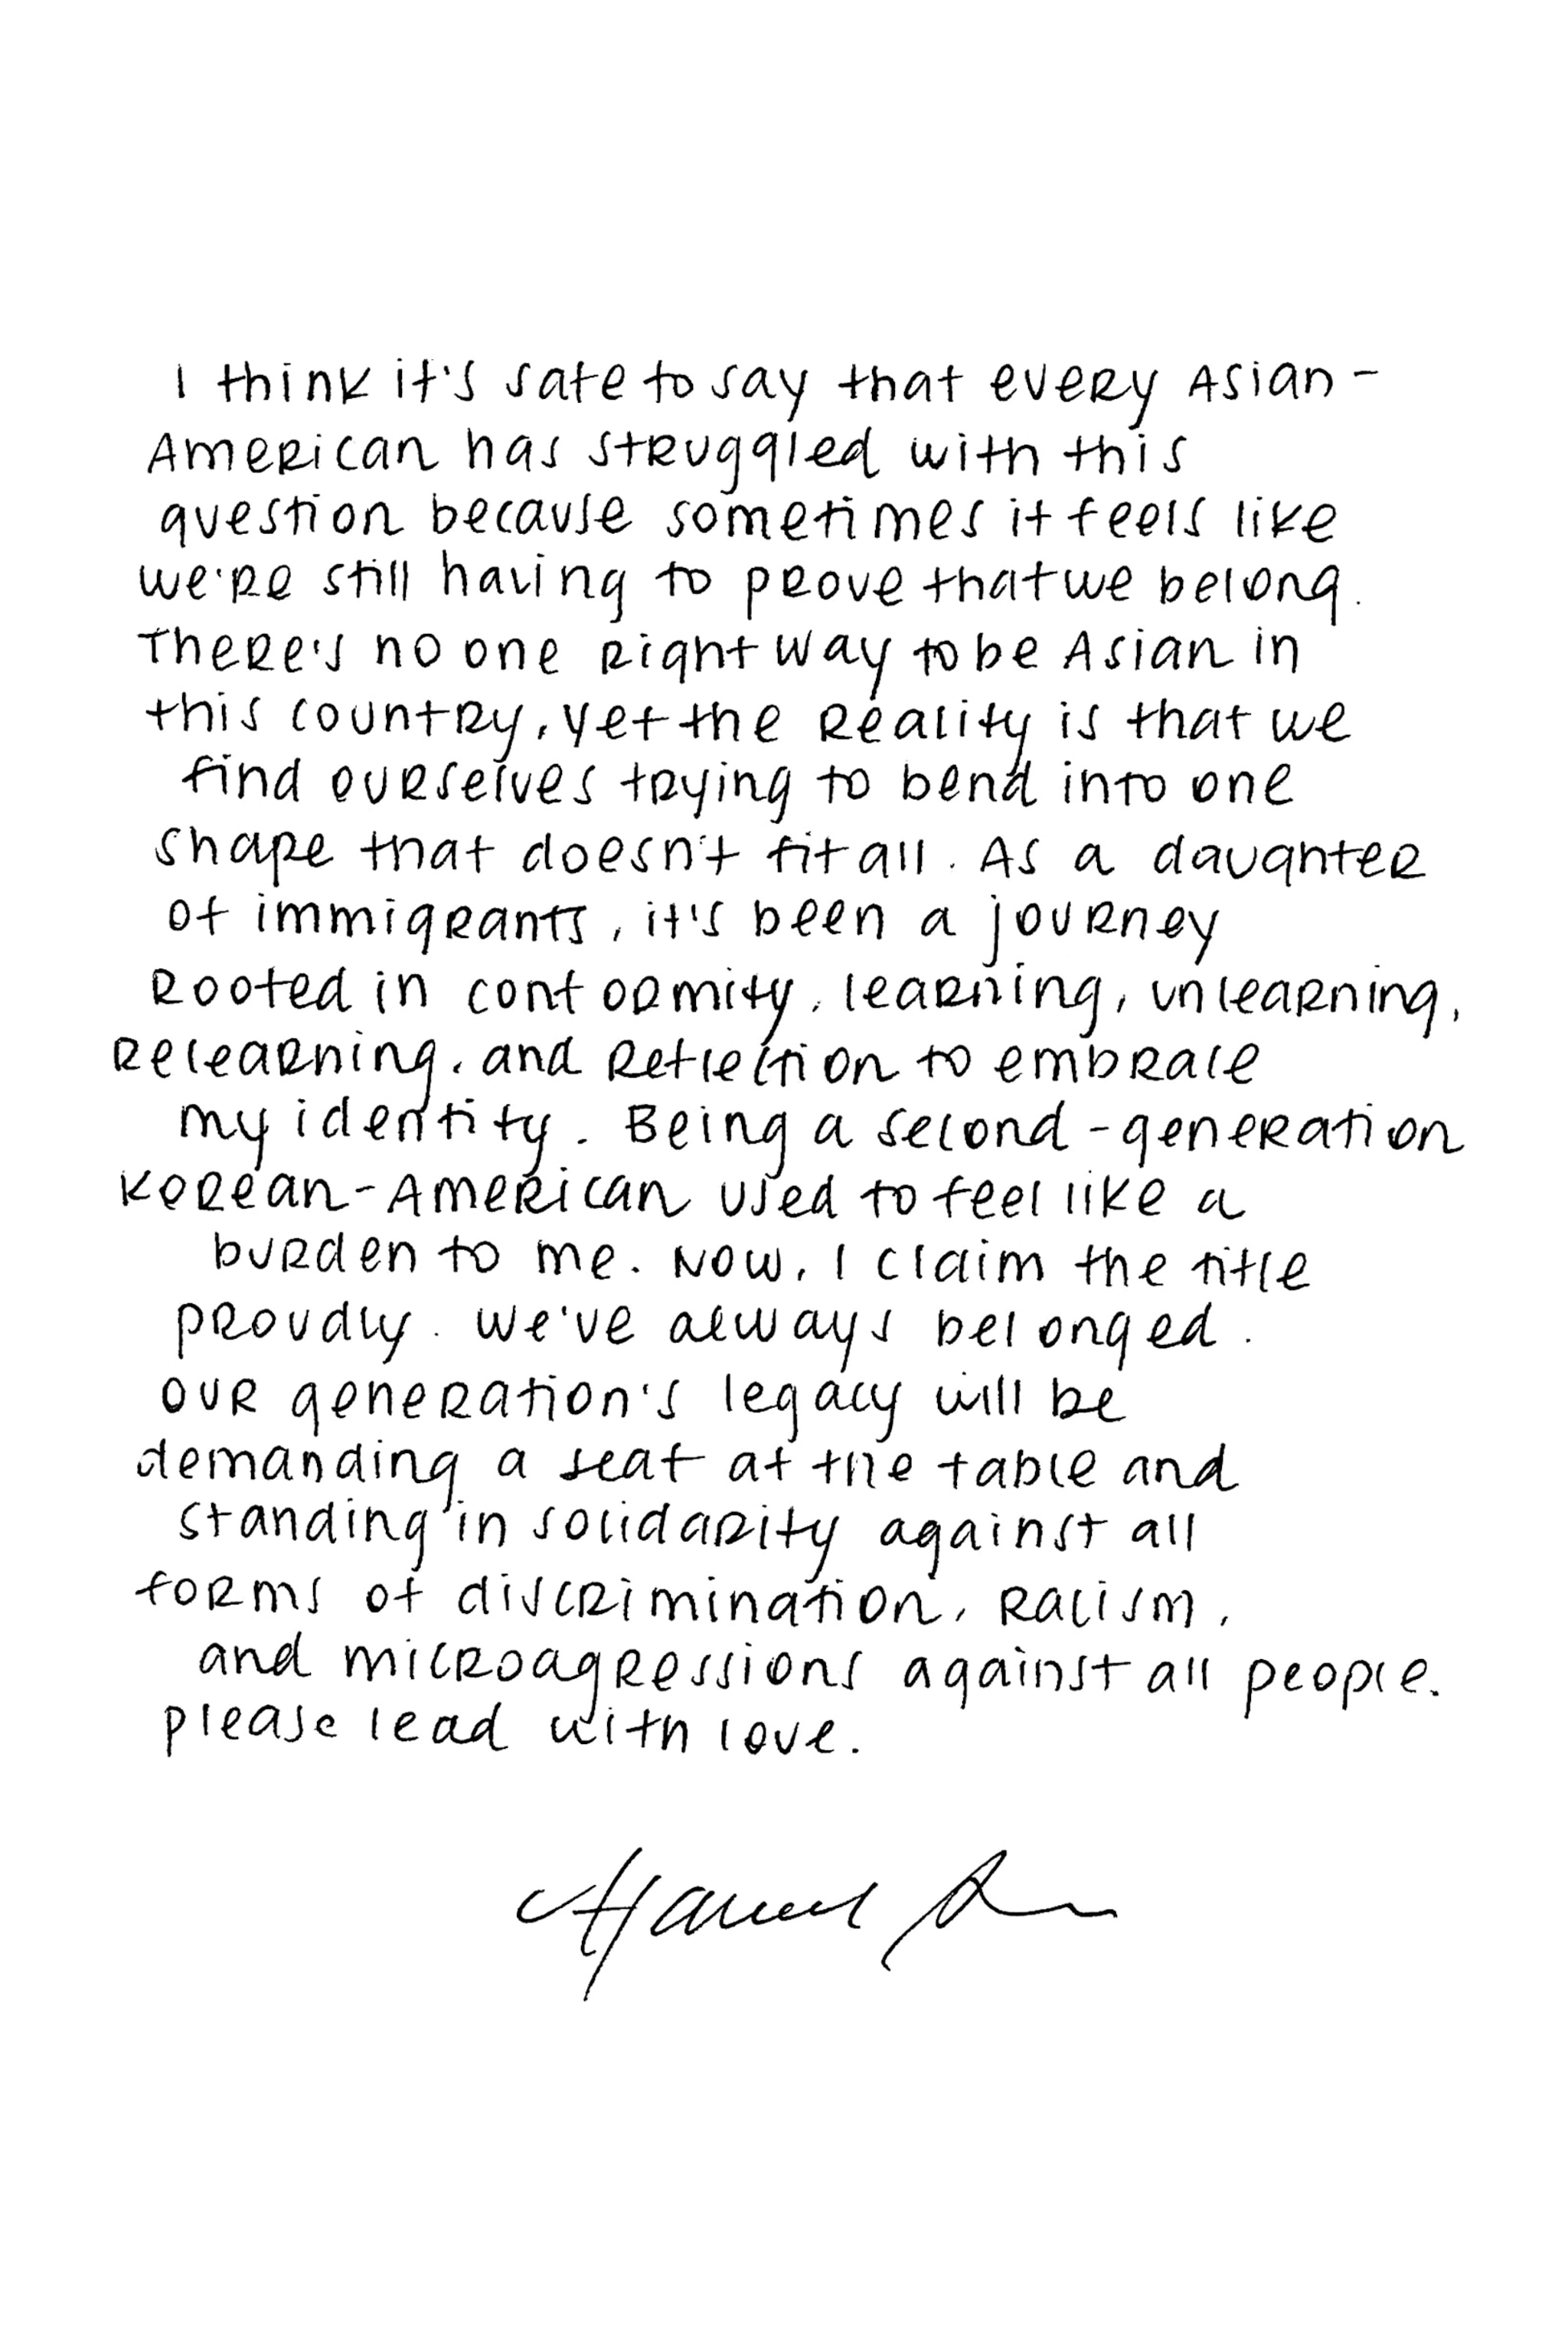 I think it's safe to say that every Asian-
American has struggled with this
question because sometimes it feels like
we're still having to prove that we belong.
There's no one right way to be Asian in
this country, yet the reality is that we
find ourselves trying to bend into one
shape that doesn't fit all. As a daughter
of immigrants, it's been a journey
rooted in conformity, learning, unlearning,
relearning, and reflection to embrace
my identity. Being a second-generation
Korean-American used to feel like a
burden to me. Now, I claim the title
proudly. We've always belonged.
Our generation's legacy will be
demanding a seat at the table and
standing in solidarity against all
forms of discrimination, racism,
and microagressions against all people.
please lead with love.